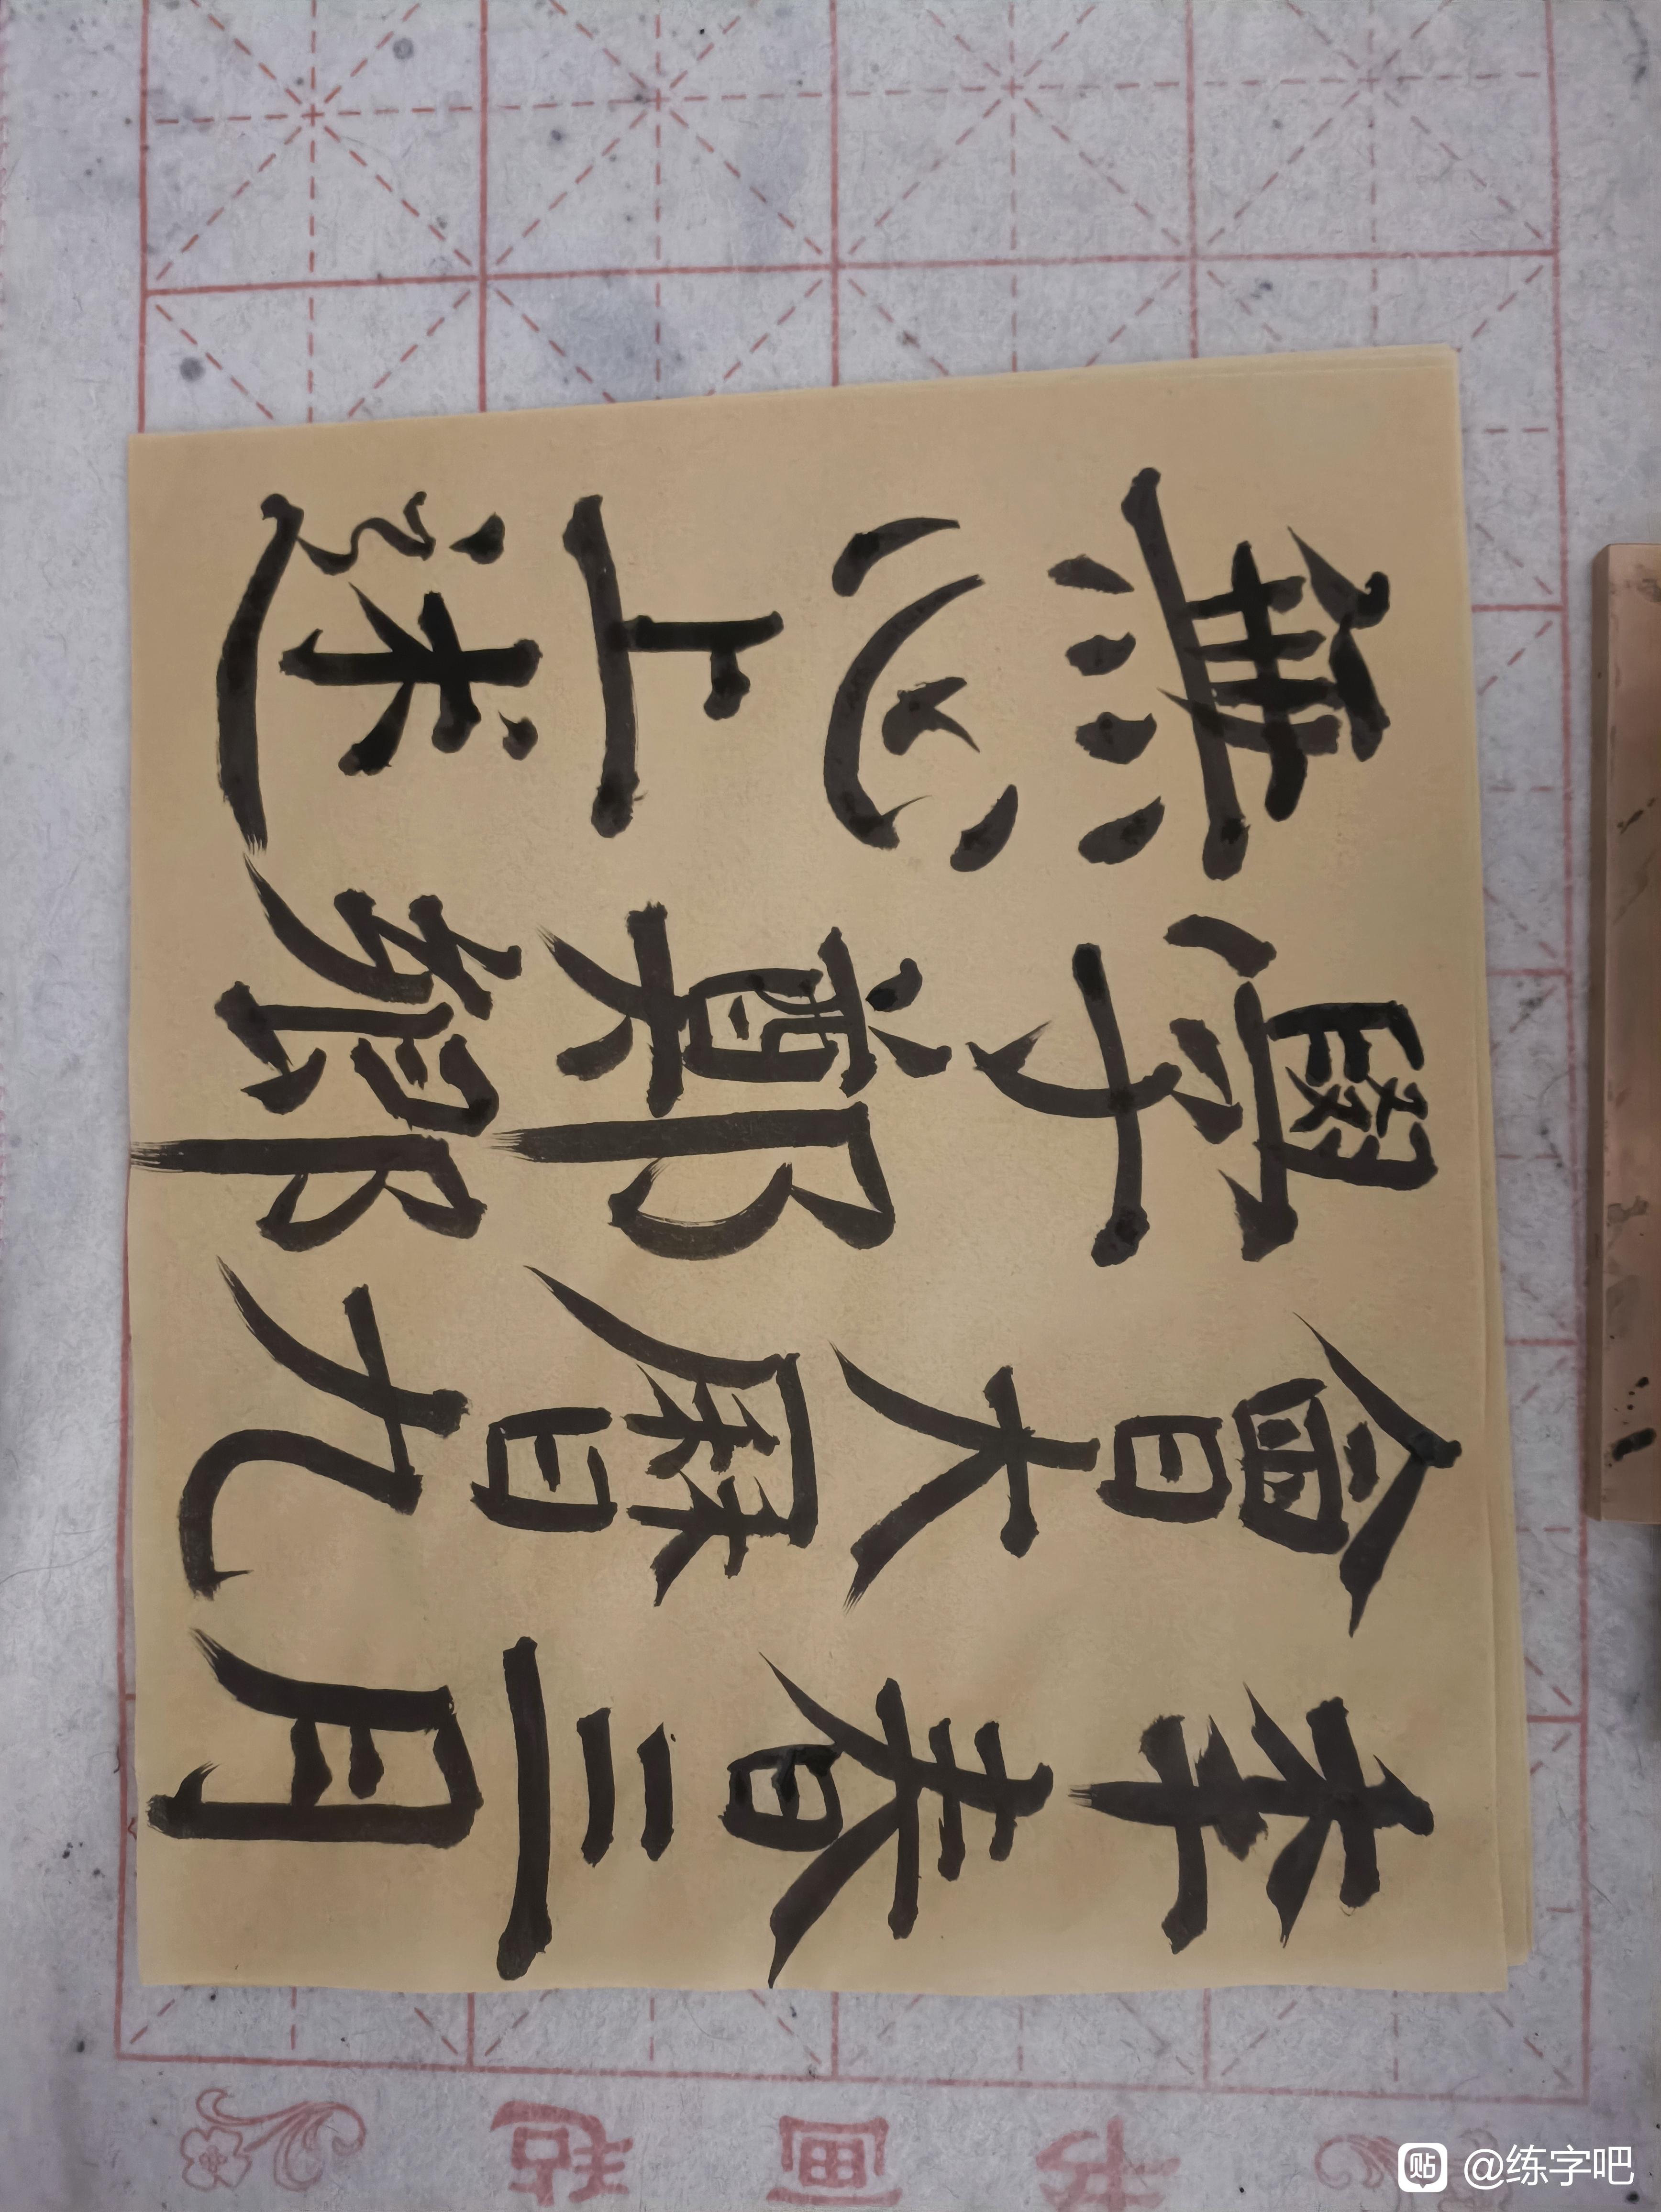 春三月
會大曆九
學鄭鄉
無心上述
书画毡
@练字吧